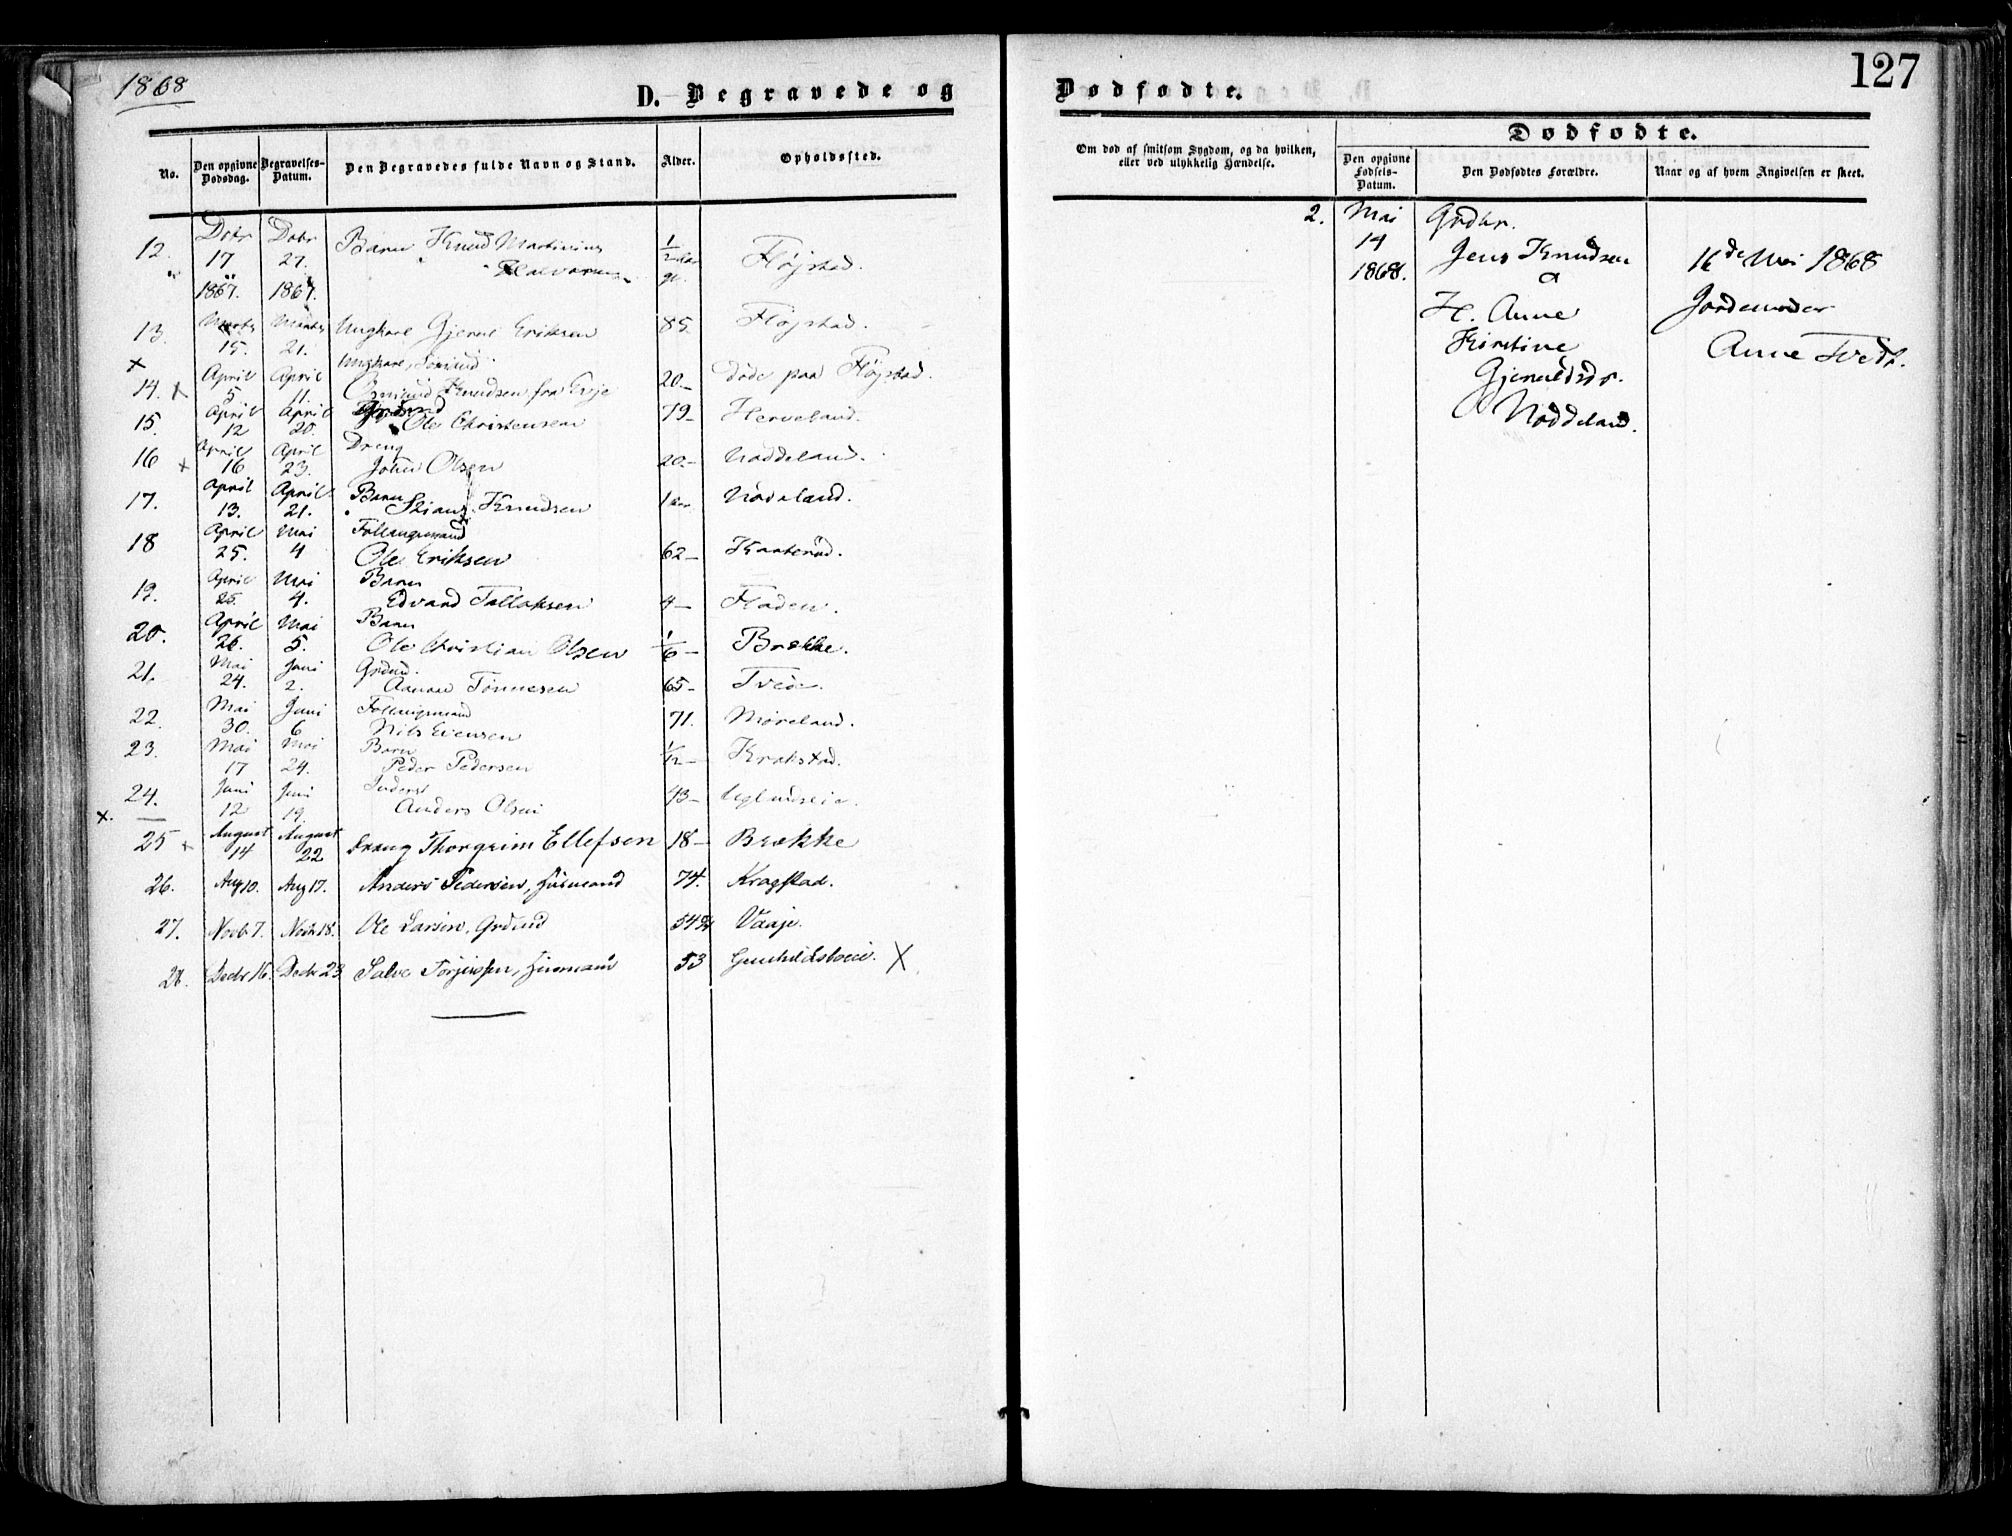 1868
D. Begravede og
No.
Den opgivne Dødsdag.
Begravelses-Datum.
Den Begravedes fulde Navn og Stand.
Alder.
Opholdssted.
12. Debr 17 1867. Debr 27. 1867. Barn Knud Martinius 1/2 Aar gl. Fløjstad.
13. Marts 15. Marts 21. Ungkarl Gjerul Eriksen 85. Fløjstad.
x
14. x April 5 April 11. Ungkarl, Sømand
Omund Knudsen fra 20- døde paa Fløjstad.
15. April 12 April 20. Ole Christensen 79- Herveland.
16 x April 16 April 23. Dreng
John Olsen 20.- Nøddeland.
17. April 13. April 21. Barn
Knudsen 1 Aar Nødeland.
18 April 25. Mai 4 Follaugsmand
Ole Eriksen 62- Kaaterød.
19. April 25. Mai 4. Barn
Edvard Tallaksen 4- Fladen.
20. April 26. Mai 5. Barn
Ole Christian Olsen 1/6- Brække.
21. Mai 24. Juni 2. Grdmd.
Aanon Tønnesen 65- Tvede.
22. Mai 30. Juni 6 Follaugsmand
Nils Evensen 71. Møreland.
23. Mai 17 Mai 24. Barn
Peder Pedersen 1/12- Krakstad.
24. Juni 12 Juni 19. Inderst
Anders Olsen 43-
x.
25 x August 14 August 22 Dreng Thorgrim Ellefsen 18- Brække
26. Aug 10. Aug 17. Anders Pedersen, Husmand 74. Kragstad.
27. Novbr 7. Novbr 18. Ole Larsen, Grdmd 54 Vaaje.
28. Decbr 16. Decbr 23 Salve Torjussen, Husmand 53 X
Dødfødte.
127
Om død af smitsom Sygdom, og da hvilken,
eller ved ulykkelig Hændelse.
Dødfødte.
Den opgivne Fødsels-Datum.
Den Dødfødtes Forældre.
Naar og af hvem Angivelsen er skeet.
2. Mai Grdbr.
14 Jens Knudsen 16de Mai 1868
1868. a
H. Anne Jordemoder
Kirstine Anne Tvedt.
Gjeruldsdr.
Nøddeland.